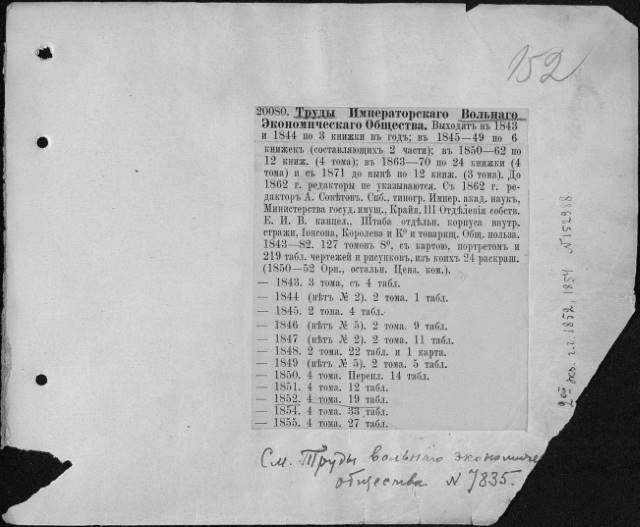 152
20080. Труды Императорскаго Вольнаго
Экономическаго Общества. Выходятъ въ 1843
и 1844 по 3 книжки въ годъ; въ 1845—49 по 6
книжекъ (составляющихъ 2 части); въ 1850—62 по
12 книж. (4 тома); въ 1863—70 по 24 книжки (4
тома) и съ 1871 до нынѣ по 12 книж. (3 тома). До
1862 г. редакторы не указываются. Съ 1862 г. ре-
дакторъ А. Совѣтовъ. Спб., типогр. Импер. акад. наукъ,
Министерства госуд. имущ., Крайя, III Отдѣленія собств.
Е. И. В. канцел., Штаба отдѣльн. корпуса внутр.
стражи, Іонсона, Королева и Ко и товарищ. Общ. польза.
1843—82. 127 томовъ 8º, съ картою, портретомъ и
219 табл. чертежей и рисунковъ, изъ коихъ 24 раскраш.
(1850—52 Орн., остальн. Цена. ком.).
— 1843. 3 тома, съ 4 табл.
— 1844 (нѣтъ № 2). 2 тома. 1 табл.
— 1845. 2 тома. 4 табл.
— 1846 (нѣтъ № 5). 2 тома. 9 табл.
— 1847 (нѣтъ № 2). 2 тома. 11 табл.
— 1848. 2 тома. 22 табл. и 1 карта.
— 1849 (нѣтъ № 5). 2 тома. 5 табл.
— 1850. 4 тома. Перепл. 14 табл.
— 1851. 4 тома. 12 табл.
— 1852. 4 тома. 19 табл.
— 1854. 4 тома. 33 табл.
— 1855. 4 тома. 27 табл.
См. Труды вольнаго экономиче
общества N 7835.
2ой экз. г.г. 1852, 1854 N 152988